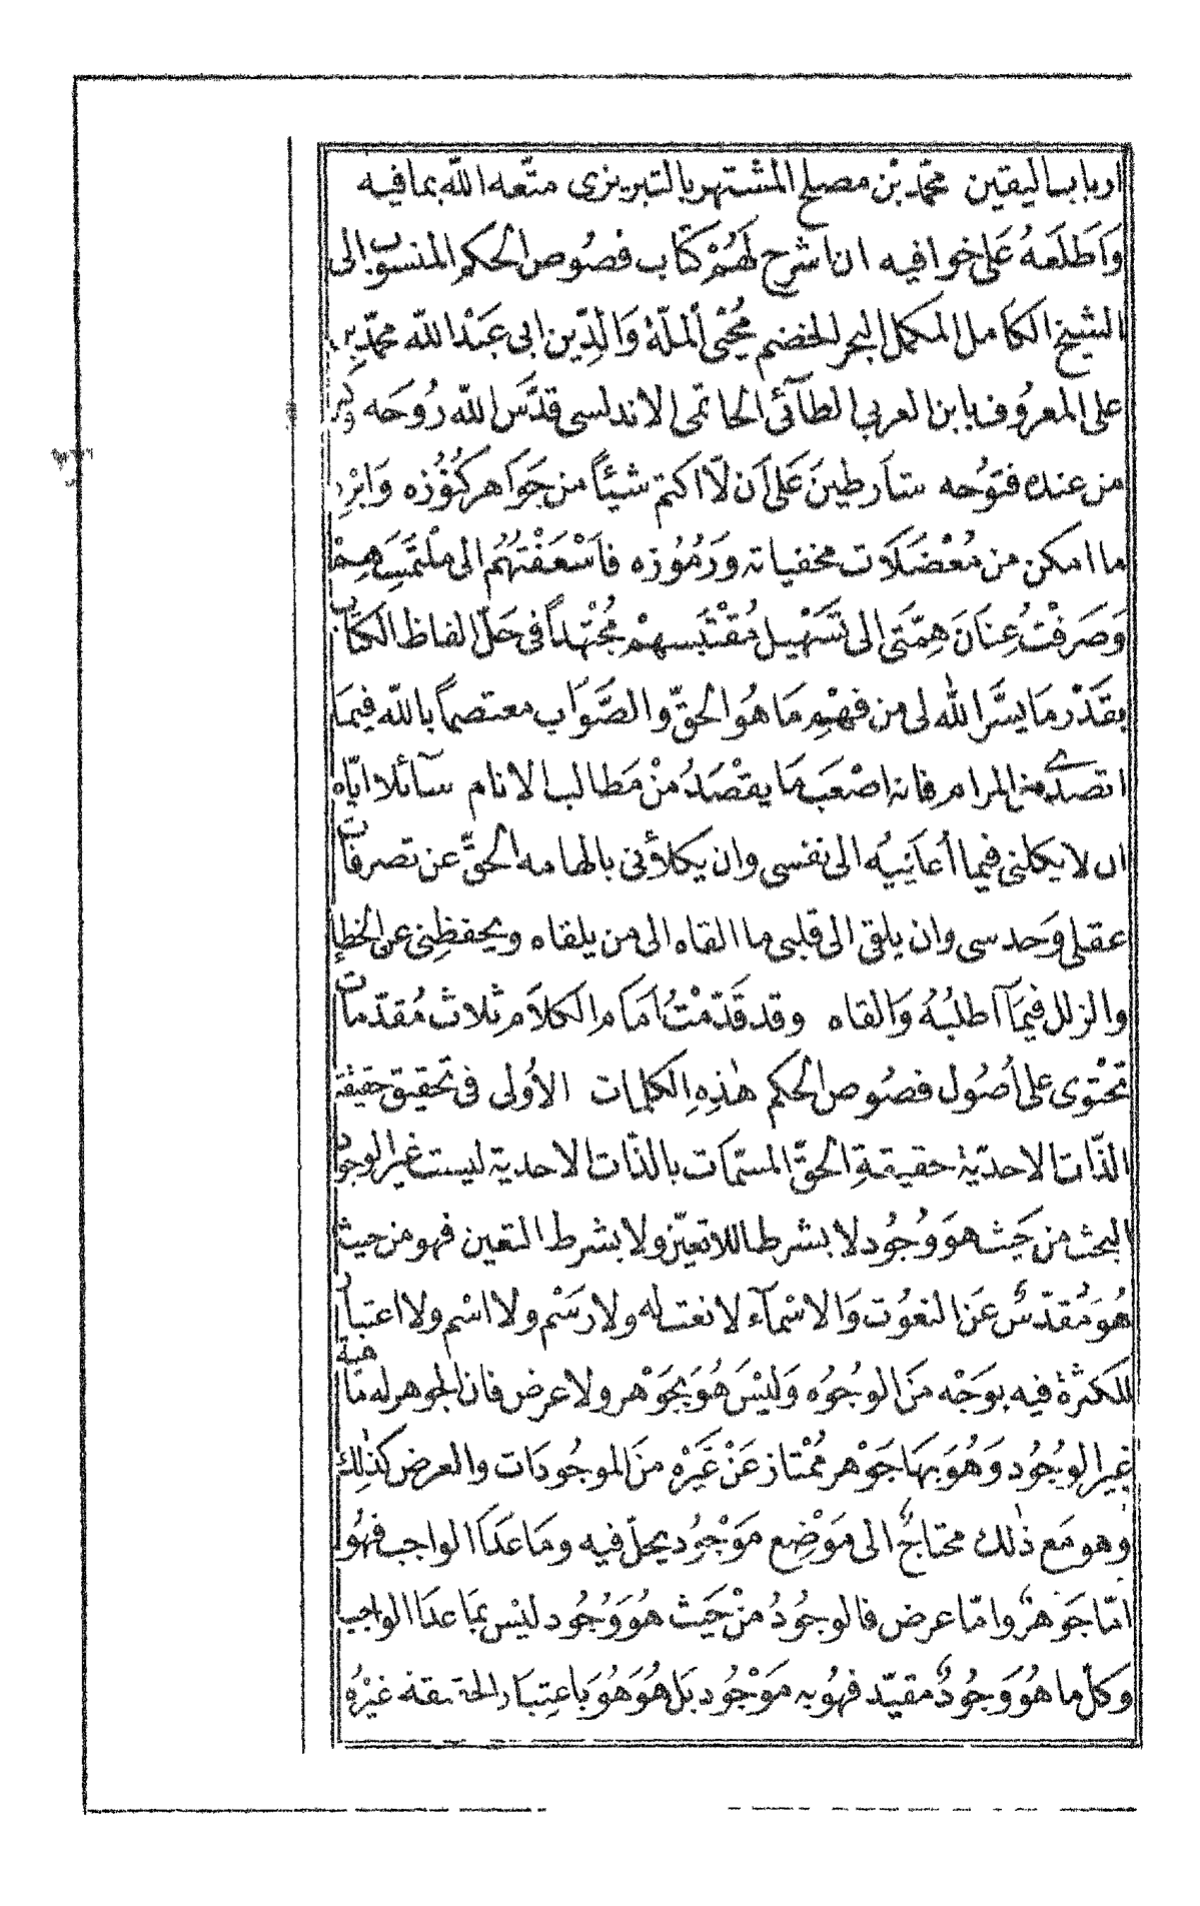 ارباب اليقين محمّد بْن مصلح المشتهر بالتبريزى متّعه اللّه بما فيه
وَاَطلَعَهُ عَلى خوافيه ان اشرح لَهُمْ كتَاب فصُوص الحكم المنسوب الى
الشيخ الكَامل المكمل البحر الخضم مُحْيى ألملّة وَالدِّين ابى عَبْد اللّه محمّد بن
على المعرُوف بابن العربي الطآئى الحاتمى الاندلسى قدَّس اللّه رُوحَه وكثر
من عنده فتوُحه شارطينَ عَلى اَن لّا اكتم شيئاً من جَوَاهر كُنُوُزه وَابْرِز
ما امكن من مُعْضَلَات مخفياته وَرمُوُزه فاَسْعَفْتهُمُ الى ملْتمَسِهِمْ
وَصَرفْتُ عِنَانَ هِمّتَى الى تَسَهْيل مُقْتبَسهمْ مُجْتهداً فى حَلّ الفاظ الكتاب
بقَدْر مَا يسَّر اللّٰه لى من فهْمِ مَا هُو الحقّ والصَّوَاب معتصماً باللّه فيمَا
اتصدى من المرام فانه اصْعَب مَا يقْصَدُ مْن مَطالب الانام سآئلا ايّاه
ان لا يكلنى فيما اُعَانِيُه الى نفسى وان يكلأنى بالهامه الحقِّ عن تصرفات
عقلى وَحدسى وان يلقى الى قلبى ما القاه الى من يلقاه ويحفظِنى عن الخطإ
والزلل فيمَا آطلبُهُ وَالقاه وقد قَدّمْتُ اَمَام الكلاَم ثلاث مُقدّمات
تحْتوى على اُصُول فصُوص الحكم هٰذِهِ الكلمات الاُولى فى تحقيق حقيقة
الذّات الاحديّة حقيقةِ الحقِّ المسمّات بالذّات الاحدية ليست غير الوجود
البحث من حَيث هوَ وُجُود لا بشرط اللاتعيّن ولا بشرط التعين فهو من حيث
هُوَ مُقدّسٌ عَن النعُوت وَالاسْمآء لا نعت له ولا رَسْم ولا اسْم ولا اعتبار
للكثرة فيه بوَجْه منَ الوجُوُه وَليْسَ هُوَ بجَوْهر ولا عرض فان الجوهر له ماهية
غير الوجُود وَهُوَ بهَا جَوْهر مُمْتاز عَنْ غَيَرْه منَ الموجُودَات والعرض كذٰلك
وهو مَع ذٰلك محتاجٌ الى مَوْضِع مَوْجُود يحلّ فيه ومَا عَدَا الواجب فهُو
امّا جَوهرٌ وامّا عرض فالوجُودُ منْ حَيث هُوَ وُجُود ليْس بمَا عدَا الواجب
وَكلّ ما هُو وَجُودٌ مقيّد فهُو به مَوْجُود بَل هُوَ هُوَ باعتِبَار الحقيقه غيْرُهُ